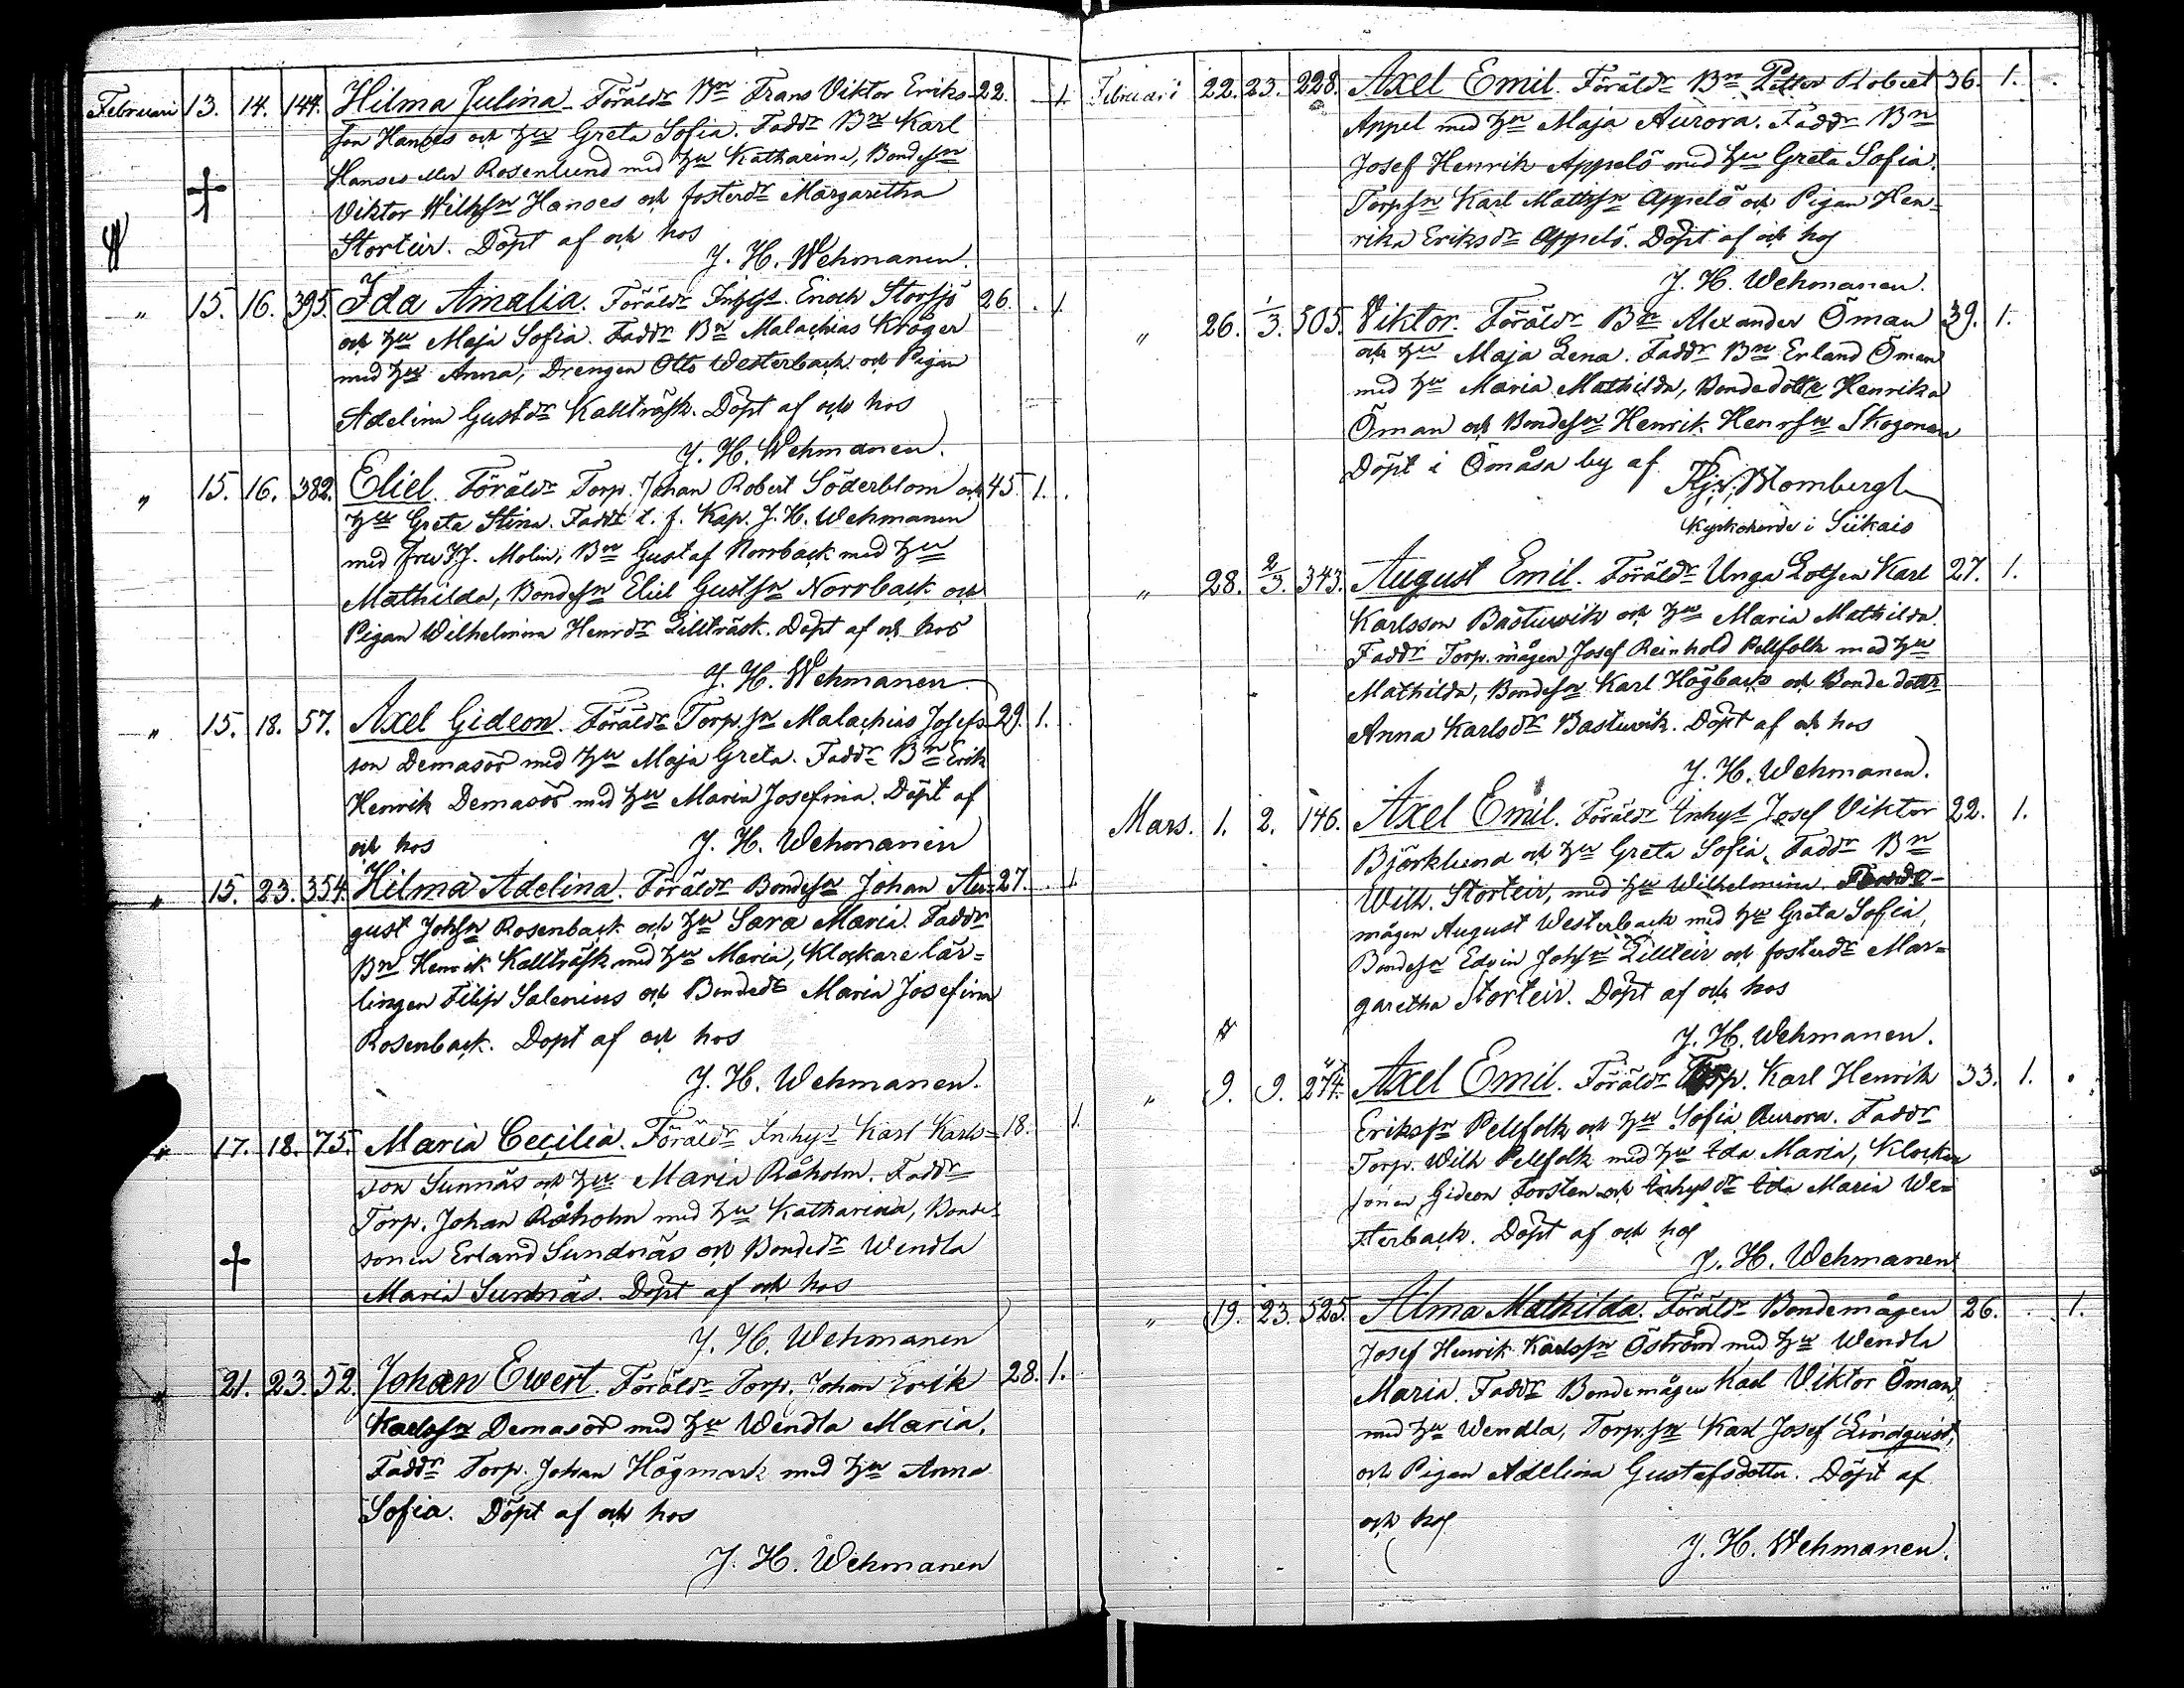 Februari 13. 14. 144. Hilma Julina. Föräldr Bn Frans Viktor Eriks- 22. 1.
son Hanses och hu Greta Sofia. Faddr Bn Karl
Hanses eller Rosenlund med hu Katharina, Bondesn
Viktor Wilhsn Hanses och fosterdr Margaretha
Storteir. Döpt af och hos
J. H. Wehmanen.
" 15. 16. 395. Ida Amalia. Föräldr Inhyst. Enoch Storsjö 26. 1
och hu Maja Sofia. Faddr Bn Malachias Kröger
med hu Anna, Drengen Otto Westerback och Pigan
Adelina Gustdr Kallträsk. Döpt af och hos
J. H. Wehmanen.
" 15. 16. 382. Eliel. Föräldr Torp. Johan Robert Söderblom och 45. 1.
hu Greta Stina. Faddr t. f. Kap. J. H. Wehmanen
med Fru Molin, Bn Gustaf Norrback med hu
Mathilda, Bondesn Eliel Gustsn Norrback och
Pigan Wilhelmina Henrdr Lillträsk. Döpt af och hos
J. H. Wehmanen.
" 15. 18. 57. Axel Gideon. Föräldr Torp.sn Malachias Josefs- 29. 1.
son Demasör med hu Maja Greta. Faddr Bn Erik
Henrik Demasör med hu Maria Josefina. Döpt af
och hos J. H. Wehmanen
" 15. 23. 354. Hilma Adelina. Föräldr Bondesn Johan Au- 27. 1
gust Johsn Rosenback och hu Sara Maria. Faddr
Bn Henrik Kallträsk med hu Maria, Klockare lär=
lingen Filip Salenius och Bondedr Maria Josefina
Rosenback. Döpt af och hos
J. H. Wehmanen.
" 17. 18. 75. Maria Cecilia. Föräldr Inhyst Karl Karls= 18. 1.
son Sunnäs och hu Maria Råholm. Faddr
Torp. Johan Råholm med hu Katharina, Bonde=
sonen Erland Sundnäs och Bondedr Wendla
Maria Sundnäs. Döpt af och hos
J. H. Wehmanen
" 21. 23. 52. Johan Ewert. Föräldr Torp. Johan Erik 28. 1.
Karlssn Demasör med hu Wendla Maria.
Faddr Torp. Johan Högmark med hu Anna
Sofia. Döpt af och hos
J. H. Wehmanen
Februari 22. 23. 228. Axel Emil. Föräldr Bn Petter Robert 36. 1.
Appel med hu Maja Aurora. Faddr Bn
Josef Henrik Appelö med hu Greta Sofia.
Torpsn Karl Mattssn Appelö och Pigan Hen=
rika Eriksdr Appelö. Döpt af och hos
J. H. Wehmanen.
" 26. 1/3. 505. Viktor. Föräldr Bn Alexander Öman 39. 1.
och hu Maja Lena. Faddr Bn Erland Öman
med hu Maria Mathilda, Bondedottr Henrika
Öman och Bondesn Henrik Henrsn Skogman
Döpt i Ömåsa by af Hj. Blombergh
Kyrkoherde i Siikais
" 28. 2/3. 343. August Emil. Föräldr Unga Lotsen Karl 27. 1.
Karlsson Bastuvik och hu Maria Mathilda.
Faddr Torp. mågen Josef Reinhold Pellfolk med hu
Mathilda, Bondesn Karl Högback och Bonde dottr
Anna Karlsdr Bastuvik. Döpt af och hos
J. H. Wehmanen.
Mars. 1. 2. 146. Axel Emil. Föräldr Inhyst Josef Viktor 22. 1.
Björklund och hu Greta Sofia. Faddr Bn
Wilh. Storteir, med hu Wilhelmina.
mågen August Westerback med hu Greta Sofia,
Bondesn Edvin Johsn Lillteir och fosterdr Mar=
garetha Storteir. Döpt af och hos
J. H. Wehmanen.
" 9. 9. 274. Axel Emil. Föräldr Torp. Karl Henrik 33. 1.
Erikssn Pellfolk och hu Sofia Aurora. Faddr
Torp. Wilh Pellfolk med hu Ida Maria, Klockar
sonen Gideon Forsten och Inhysdr Ida Maria We=
sterback. Döpt af och hos
J. H. Wehmanen
" 19. 23. 525. Alma Mathilda. Föräldr Bondemågen 26. 1.
Josef Henrik Karlssn Öström med hu Wendla
Maria. Faddr Bondemågen Karl Viktor Öman,
med hu Wendla, Torp.sn Karl Josef Lindqvist,
och Pigan Adelina Gustafsdotter. Döpt af
och hos
J. H. Wehmanen.